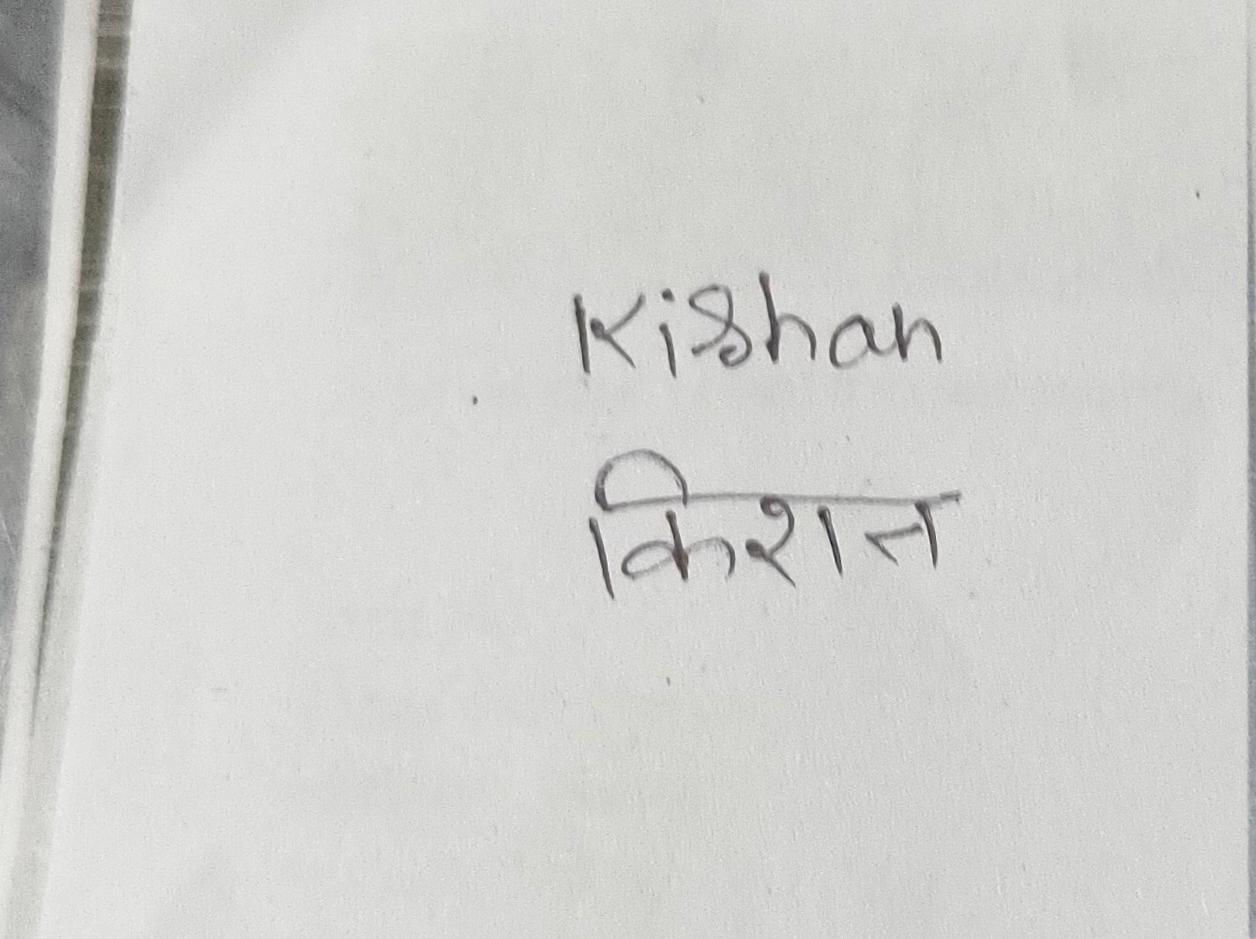 Kishan
किशन